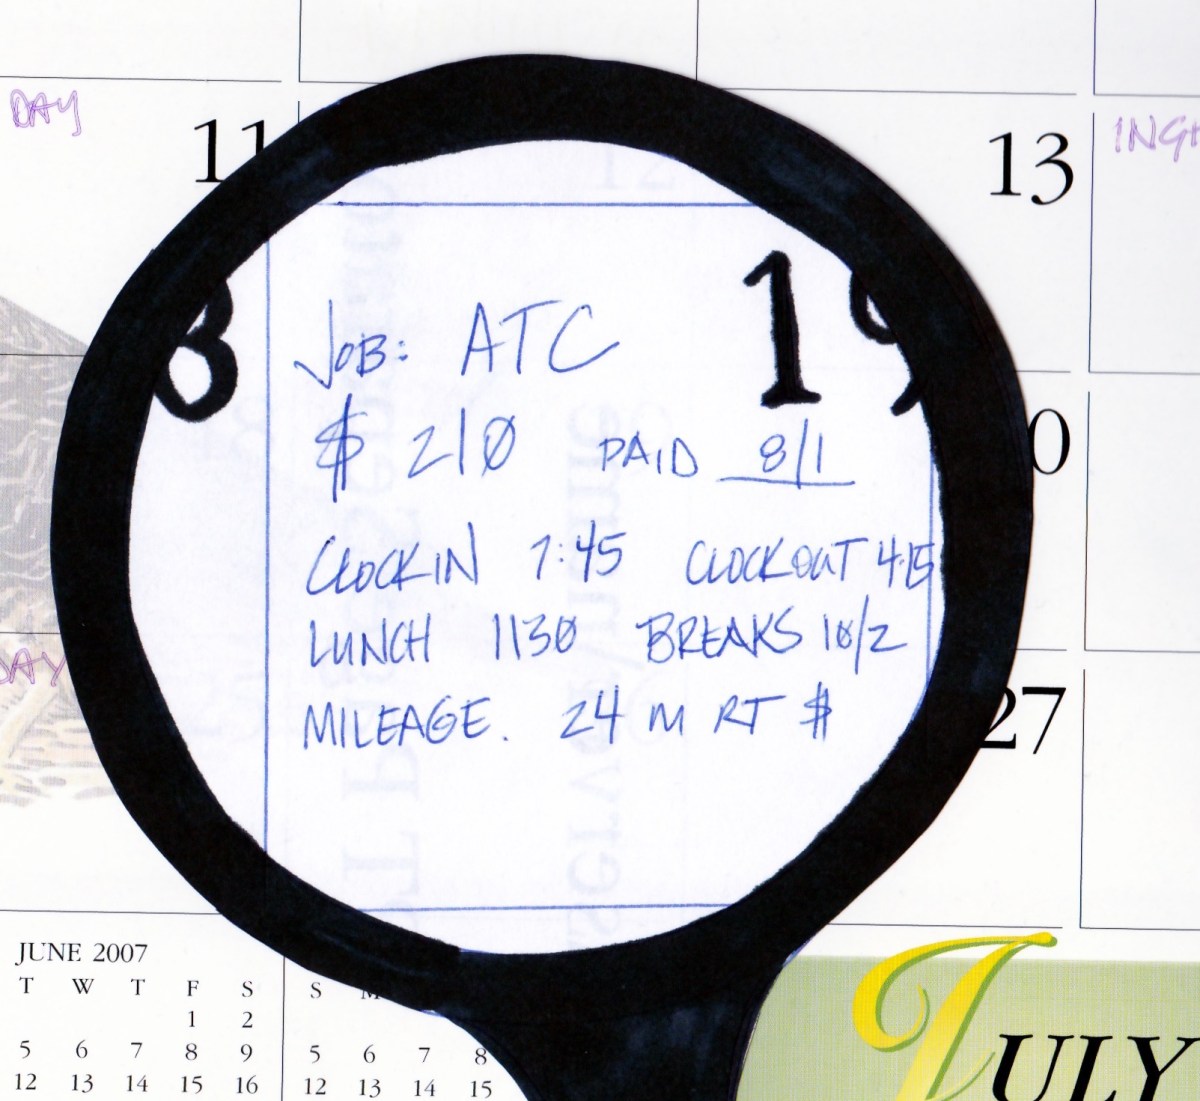 DAY
11
13
INGH
8
19
JOB: ATC
0
$ 210 PAID 8/1
CLOCKIN 7:45 CLOCKOUT 4:15
LUNCH 1130 BREAKS 10/2
DAY
MILEAGE. 24 M RT $
27
JUNE 2007
T W T F S
S M
1 2
5 6 7 8 9
5 6 7 8
12 13 14 15 16
12 13 14 15
JULY